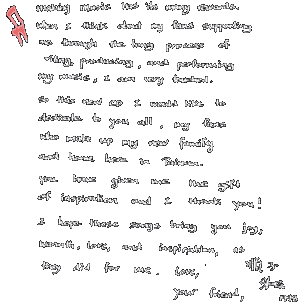 making music has its many rewards.
When I think about my fans supporting
me through the long process of
writing, producing, and performing
my music, I am very touched.
So this new EP I would like to
dedicate to you all, my fans
who make up my new family
and home here in Taiwan.
you have given me the gift
of inspiration and I thank you!
I hope these songs bring you joy,
warmth, love, and inspiration, as
they did for me. Love,
your friend,